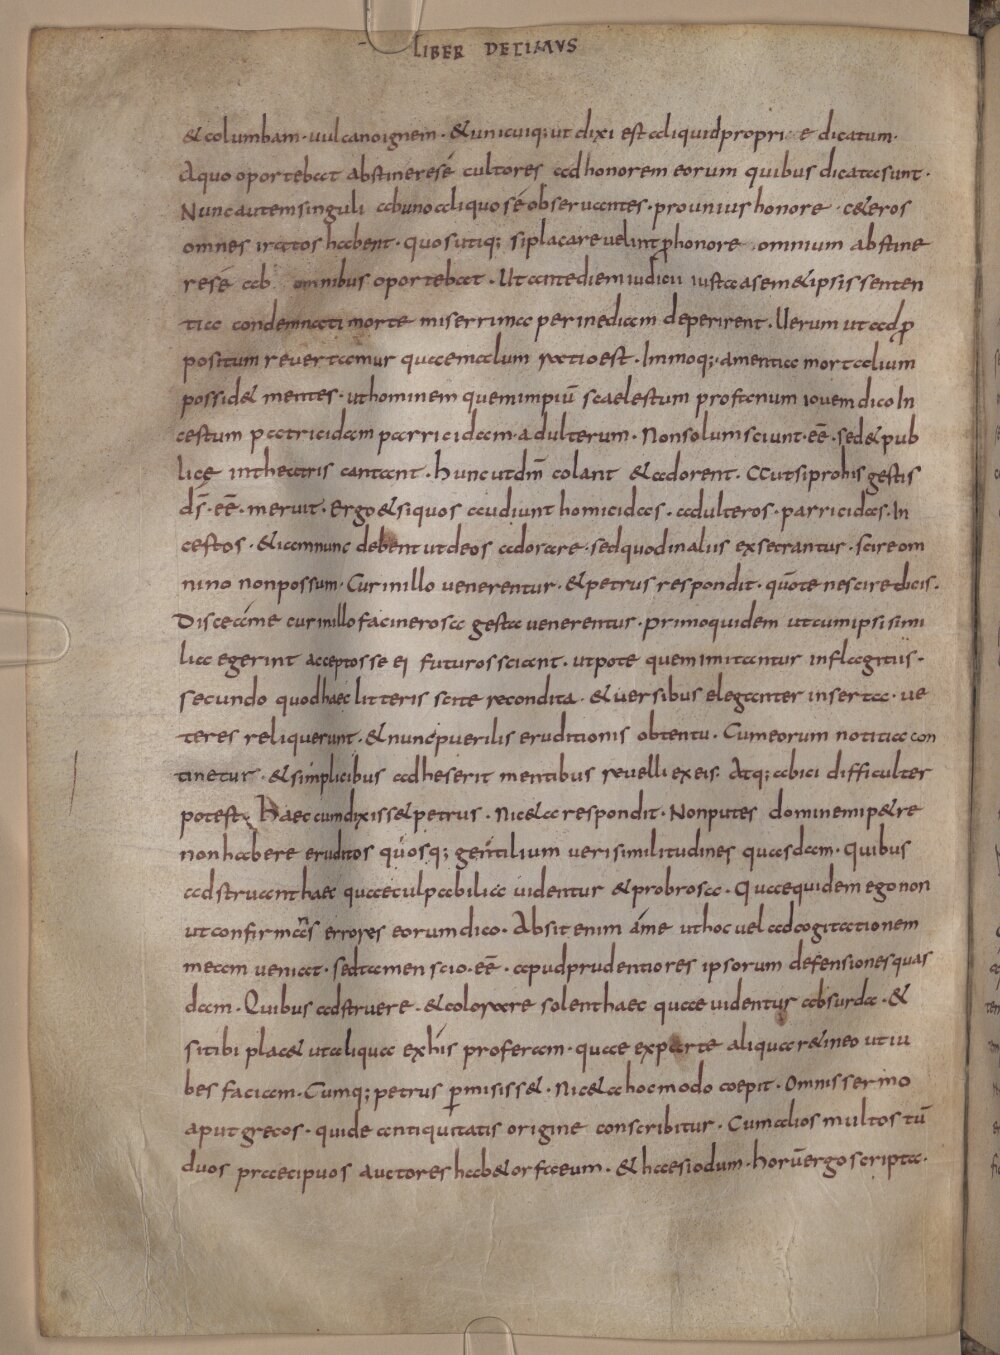 LIBER DECIMVS
& columbam · uulcano ignem · & unicuiq; ut dixi est aliquid proprie dicatum ·
A quo oportebat abstinere sé cultores ad honorem eorum quibus dicata sunt ·
Nunc autem singuli ab uno aliquo sé obseruantes · pro unius honore · c&eros
omnes iratos habent · quos utiq; si placare uelint ꝓ honore omnium abstine
re sé ab omnibus oportebat · Ut ante diem iudicii iusta a sem& ipsis senten
tia condemnati morte miserrima per inediam deperirent · Uerum ut ad ꝓ
positum reuertamur quae malum ratio est · Immoq; · amentia mortalium
possid& mentes · ut hominem quem impiū scaelestum profanum iouem dico In
cestum patricidam parricidam · adulterum · Non solum sciunt · eē · sed & pub
lice in theatris cantant · hunc ut dm̄ colant & adorent · Aut si pro his gestis
ds̄ · eē · meruit · Ergo & si quos audiunt homicidas · adulteros · parricidas · In
cestos · & iam nunc debent ut deos adorare · sed quod in aliis exsecrantur · scire om
nino non possum · Cur in illo uenerentur · & petrus respondit · quō te nescire dicis ·
Disce á me cur in illo facinerosa gesta uenerentur · primo quidem ut cum ipsi simi
lia egerint acceptos se ei futuros sciant · utpote quem imitantur in flagitiis ·
secundo quod haec litteris scite recondita · & uersibus eleganter inserta · ue
teres reliquerunt · & nunc puerilis eruditionis obtentu · Cum eorum notitia con
tinetur · & simplicibus adheserit mentibus reuelli ex eis · Atq; abici difficulter
potest · Haec cum dixiss& petrus · Nic&a respondit · Non putes domine mi p&re
non habere eruditos quosq; gentilium uerisimilitudines quasdam · quibus
adstruant haec quae culpabilia uidentur & probrosa · Quae quidem ego non
ut confirmās errores eorum dico · Absit enim á me ut hoc uel ad cogitationem
meam ueniat · sed tamen scio · eē · apud prudentiores ipsorum defensiones quas
dam · Quibus adstruere · & colorare solent haec quae uidentur absurda · &
si tibi plac& ut aliqua ex his proferam · quae ex parte aliqua r&ineo ut iu
bes faciam · Cumq; petrus ꝑmisiss& · Nic&a hoc modo coepit · Omnis sermo
aput grecos · qui de antiquitatis origine conscribitur · Cum alios multos tū
duos praecipuos auctores hab& orfaeum · & haesiodum · horū ergo scripta ·